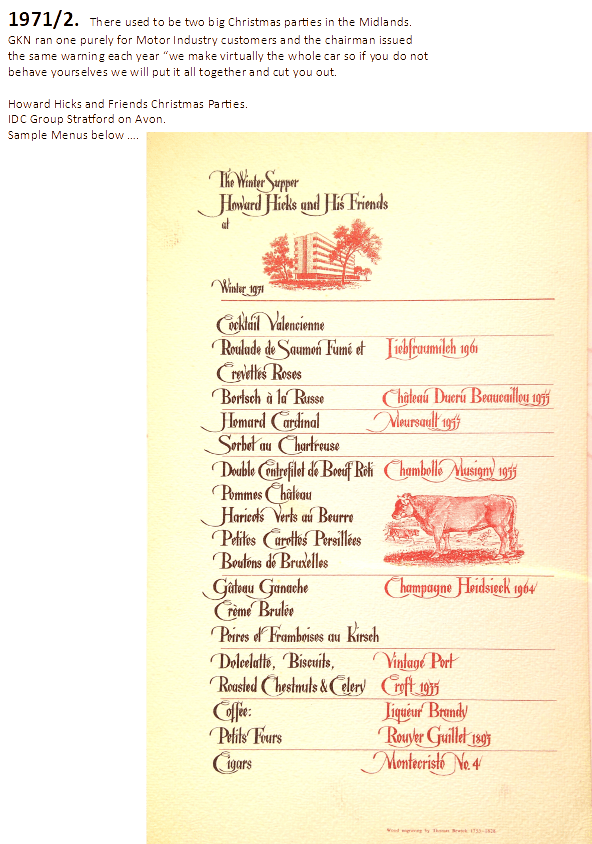 1971/2. There used to be two big Christmas parties in the Midlands.
GKN ran one purely for Motor Industry customers and the chairman issued
the same warning each year “we make virtually the whole car so if you do not
behave yourselves we will put it all together and cut you out.
Howard Hicks and Friends Christmas Parties.
IDC Group Stratford on Avon.
Sample Menus below ....
The Winter Supper
Howard Hicks and His Friends
at
Winter 1971
Cocktail Valencienne
Roulade de Saumon Fumé et Liebfraumilch 1961
Crevettes Roses
Bortsch à la Russe Château Ducru Beaucaillou 1955
Homard Cardinal Meursault 1955
Sorbet au Chartreuse
Double Contrefilet de Boeuf Rôti Chambolle Musigny 1955
Pommes Château
Haricots Verts au Beurre
Petites Carottes Persillées
Boutons de Bruxelles
Gâteau Ganache Champagne Heidsieck 1964
Crème Brulée
Poires et Framboises au Kirsch
Dolcelatte, Biscuits, Vintage Port
Roasted Chestnuts & Celery Croft 1955
Coffee: Liqueur Brandy
Petits Fours Rouyer Guillet 1895
Cigars Montecristo No. 4
Wood engraving by Thomas Bewick 1753–1828